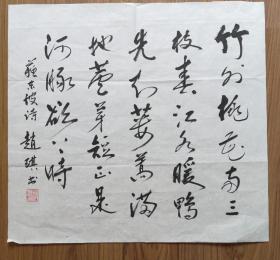 竹外桃花两三
枝春江水暖鴨
先知蔞蒿满
地蘆芽短正是
河豚欲上時
蘇东坡诗 趙琪书